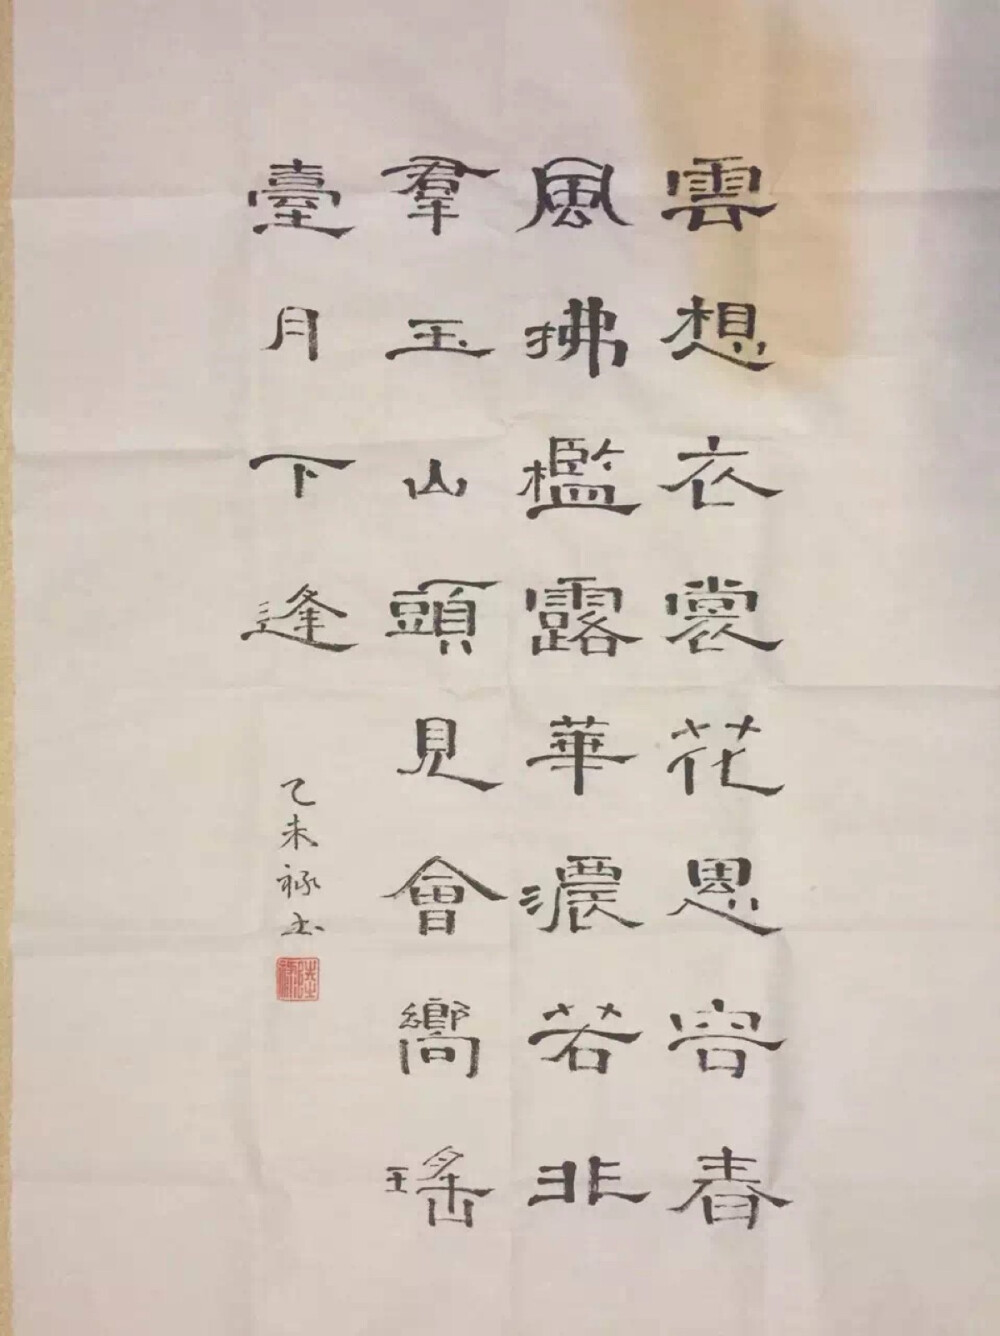 雲想衣裳花思容春
風拂檻露華濃若非
羣玉山頭見會嚮瑤
臺月下逢
乙未禄書